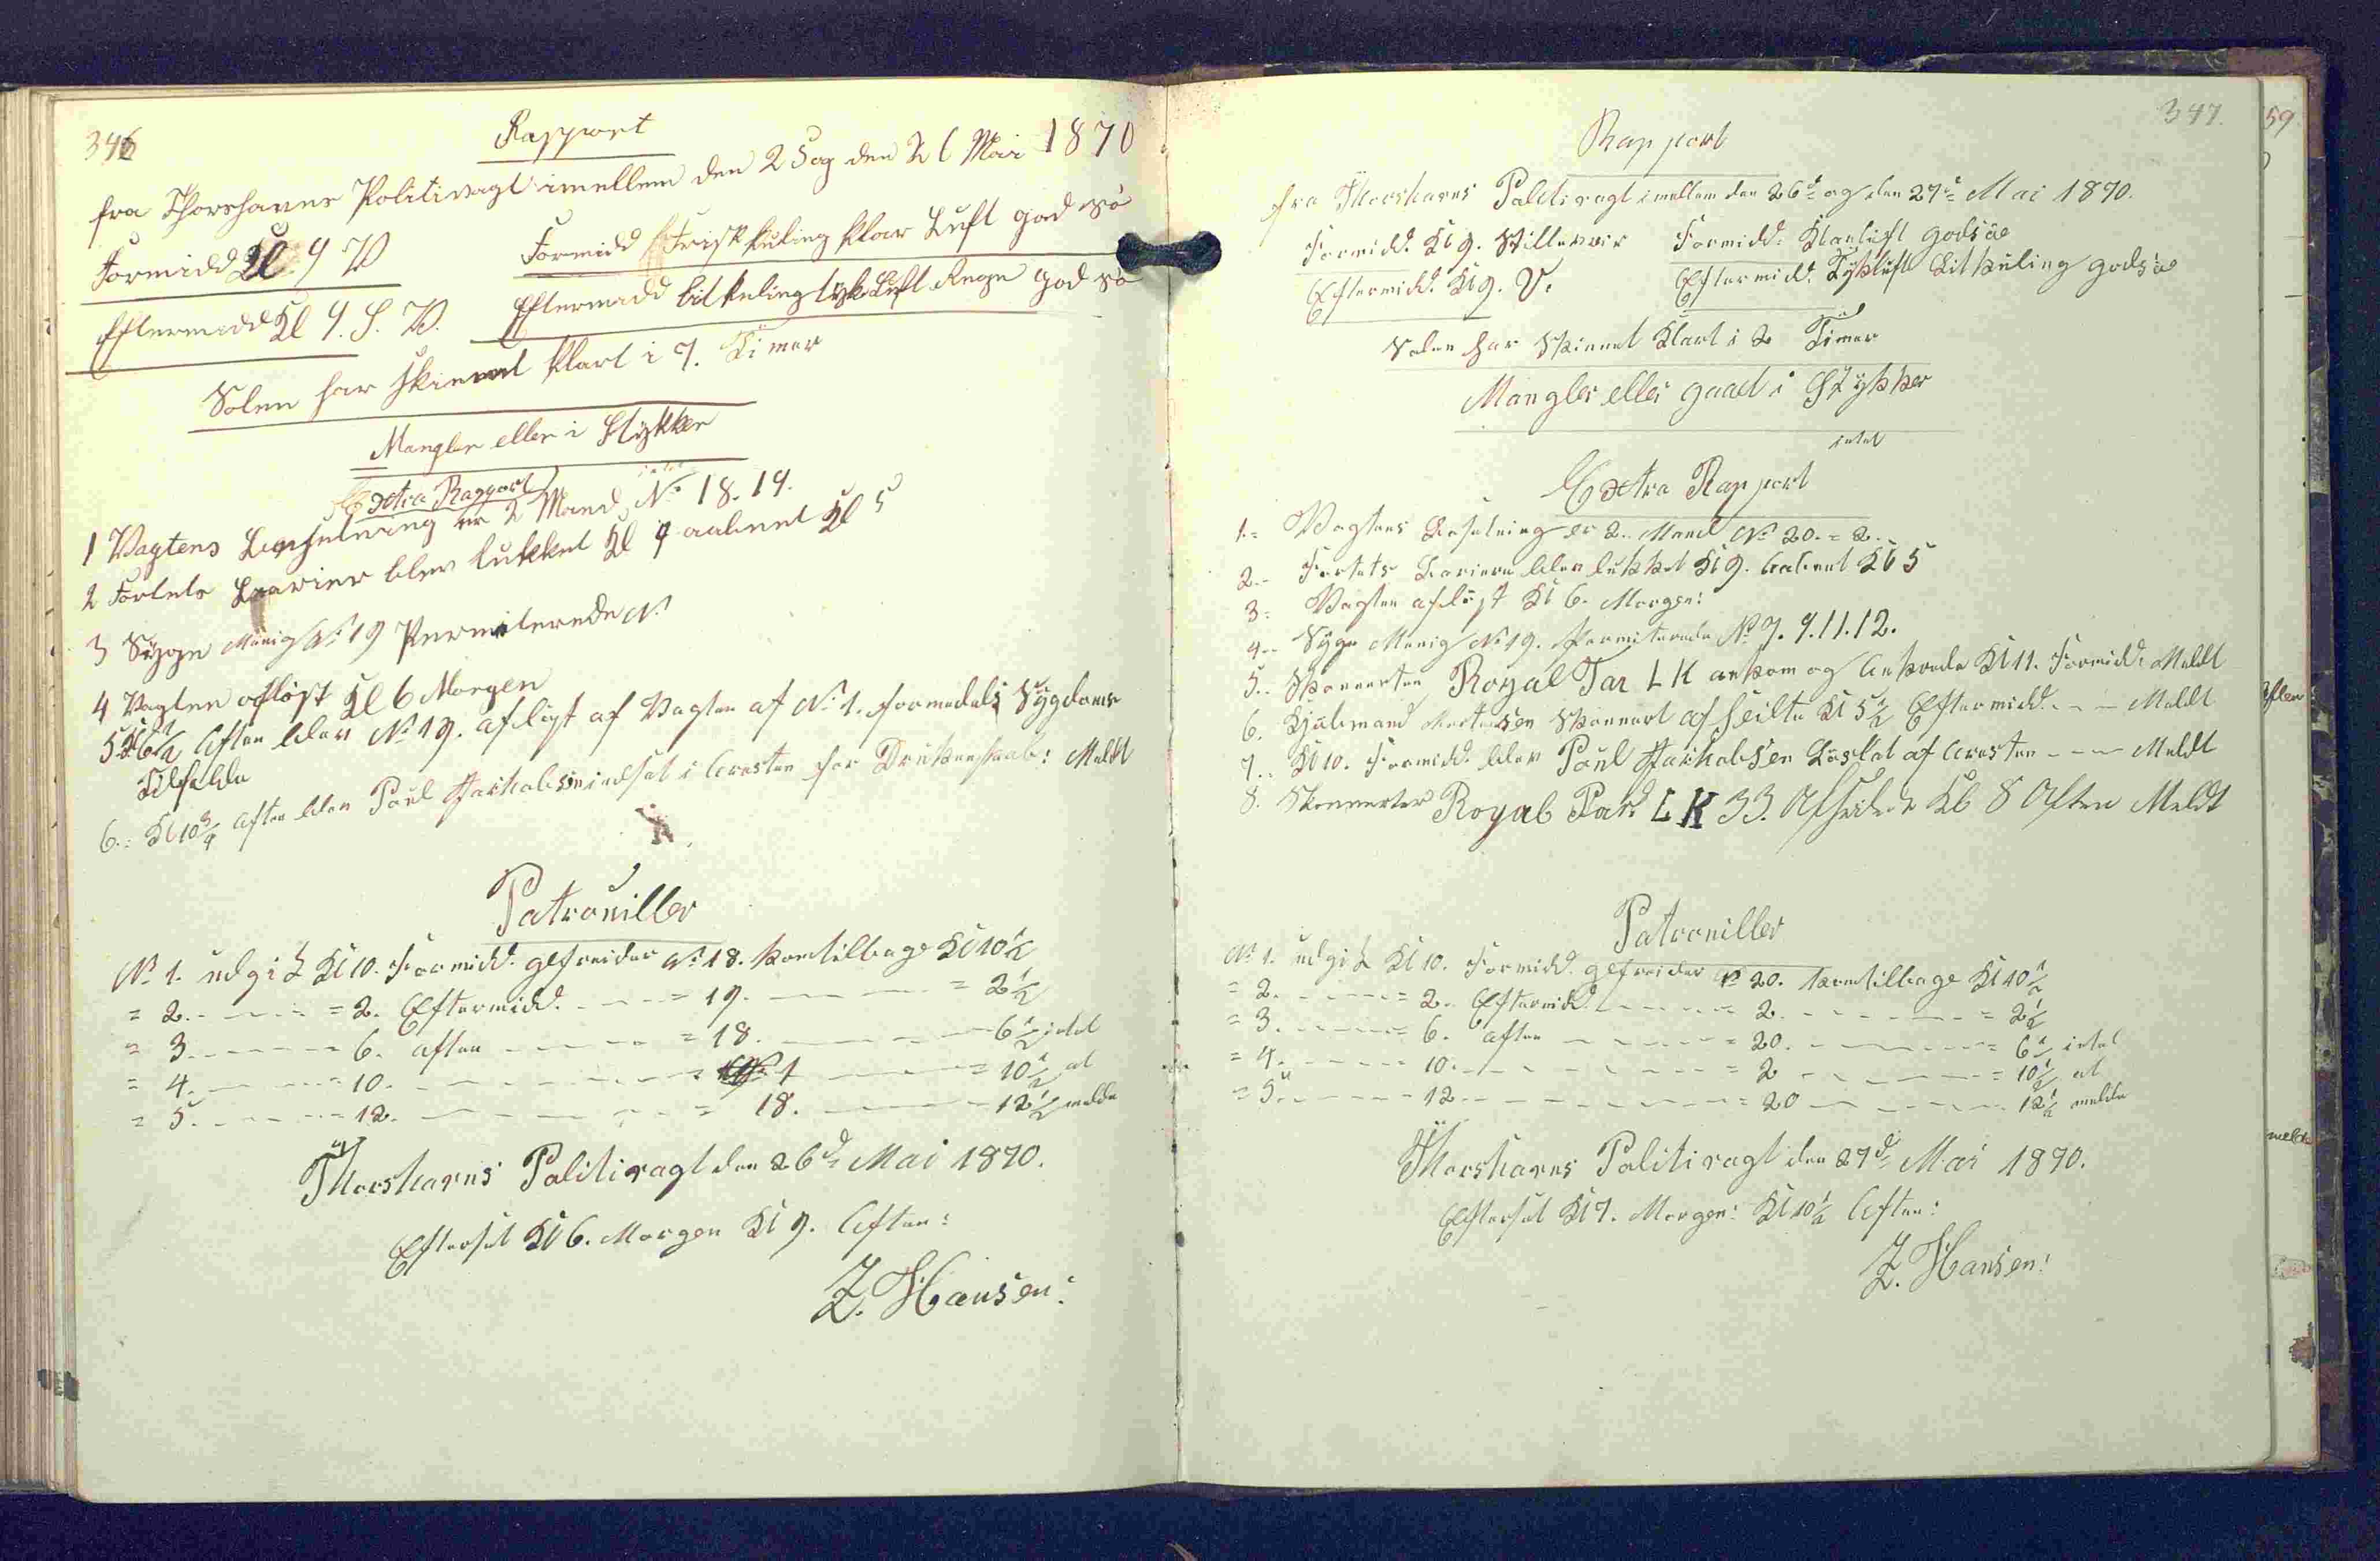 346
Rapport
fra Thorshavns Politivagt imellem den 25 og den 26 Mai 1870
Formidd Kl 9 V
Formidd Frisk kuling klar Luft god Sø
Eftermidd Kl 9. S. V.
Eftermidd lit kuling tyk Luft Regn god Sø
Solen har skinnet klart i 7. Timer
Mangler eller i Stykker
intet
Extra Rapport
1 Vagtens Besætning er 2 Mand No 18. 19.
2 Fortets Barrier blev lukket Kl 9 aabnet Kl 5
3 Syge Menig No 19 Permiterede No
4 Vagten afløst Kl 6 Morgen
5 Kl 6½ Aften blev No 19. afløst af Vagten af No 1. formedelst Sygdoms
Tilfælde
6.: Kl 10¾ Aften blev Poul Jackobsen indsat i Aresten for Drukenskab: Meldt
Patrouiller
No 1. udgik Kl 10. Formidd. gefreider No 18. kom tilbage Kl 10½
= 2. - - - = 2. Eftermidd. - - = 19. - - - = 2½
= 3. - - - = 6. Aften - - - = 18. - - - 6½ intet
= 4. - - - = 10. - - - 1 - - - = 10½ at
= 5. - - - = 12. - - - = 18. - - - 12½ melde
Thorshavns Politivagt den 26d= Mai 1870.
Efterset Kl 6. Morgen Kl 9. Aften:
Z. Hansen:
347.
Rapport
fra Thorshavns Politivagt imellem den 26d= og den 27d= Mai 1870.
Formidd. Kl 9. Stille
Formidd: Klarluft god Sø
Eftermidd. Kl 9. V.
Eftermidd. Tykluft Lit kuling god Sø
Solen har Skinnet Klart i 2 Timer
Mangler eller gaaet i Stykker
intet
Extra Rapport
1.= Vagtens Besetning er 2. Mand No 20. = 2.
2.- Fortets Bariere blev lukket Kl 9. Aabnet Kl 5
3= Vagten afløst Kl 6. Morgen:
4.- Syge Menig No 19. Permiterede No 7. 9. 11. 12.
5.. Skonnerten Royal Tar LK ankom og Ankrede Kl 11. Formidd: Meldt
6. Mortensen Skonnert afseilte Kl 5½ Eftermidd. - - Meldt
7.. Kl 10. Formidd. blev Poul Jackobsen Løslat af Aresten - - - Meldt
8. Skonnerten Royal Tar LK 33. Afseilede Kl 8 Aften Meldt
Patrouiller
No 1. udgik Kl 10. Formidd. gefreider No 20. kom tilbage Kl 10½
= 2. - - - = 2. Eftermidd. - - - = 2. - - - = 2½
= 3. - - - = 6. Aften - - - = 20. - - - = 6½ intet
= 4. - - - = 10. - - - = 2 - - - = 10½ at
= 5. - - - 12 - - - = 20 - - - 12½ melde
Thorshavns Politivagt den 27d= Mai 1870.
Efterset Kl 7. Morgen: Kl 10½ Aften:
Z. Hansen:
59
melde